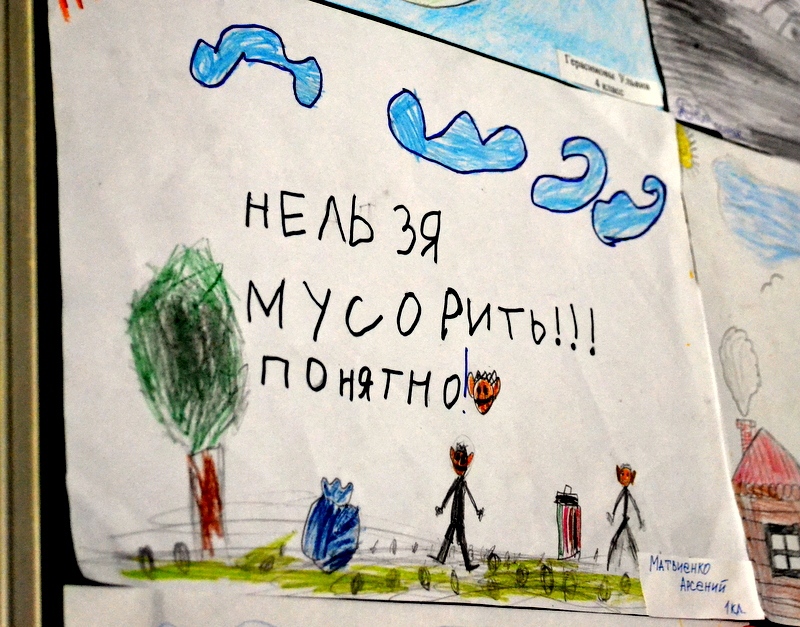 Герасимова Ульяна
4 класс
НЕЛЬЗЯ
МУСОРИТЬ!!!
ПОНЯТНО!
Матвиенко
Арсений
1кл.